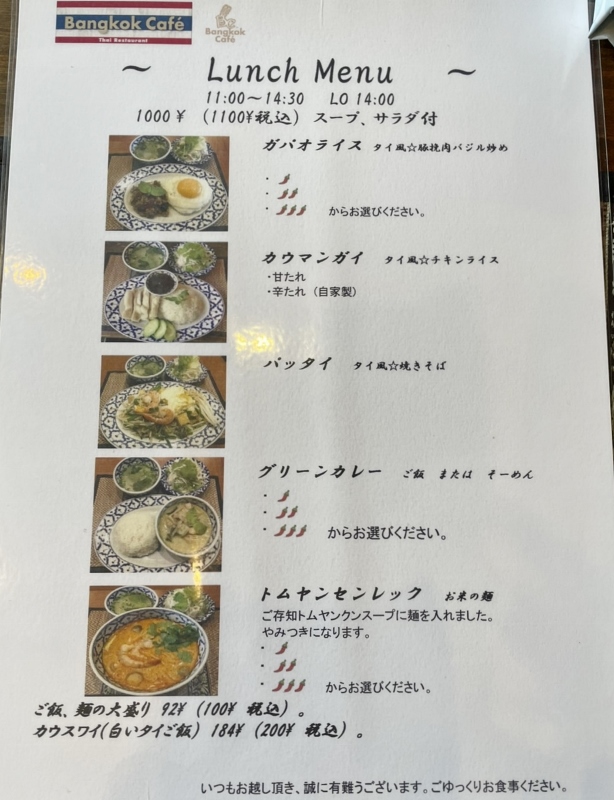 Bangkok Café
Thai Restaurant
Bangkok
Café
～ Lunch Menu ～
11:00～14:30 LO 14:00
1000¥ (1100¥税込) スープ、サラダ付
ガパオライス タイ風☆豚挽肉バジル炒め
・
・
・ からお選びください。
カウマンガイ タイ風☆チキンライス
・甘たれ
・辛たれ（自家製）
パッタイ タイ風☆焼きそば
グリーンカレー ご飯 または そーめん
・
・
・ からお選びください。
トムヤンセンレック お米の麺
ご存知トムヤンクンスープに麺を入れました。
やみつきになります。
・
・
・ からお選びください。
ご飯、麺の大盛り 92¥ (100¥ 税込) 。
カウスワイ(白いタイご飯) 184¥ (200¥ 税込) 。
いつもお越し頂き、誠に有難うございます。ごゆっくりお食事ください。